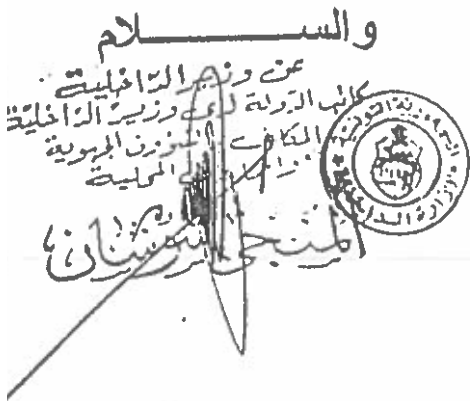 والســـــــلام
عن وزير الداخلية
كاتب الدولة لدى وزير الداخلية
المكلف بالشؤون الجهوية
المحلية
المنجي شوشان
الجمهورية التونسية
وزارة الداخلية